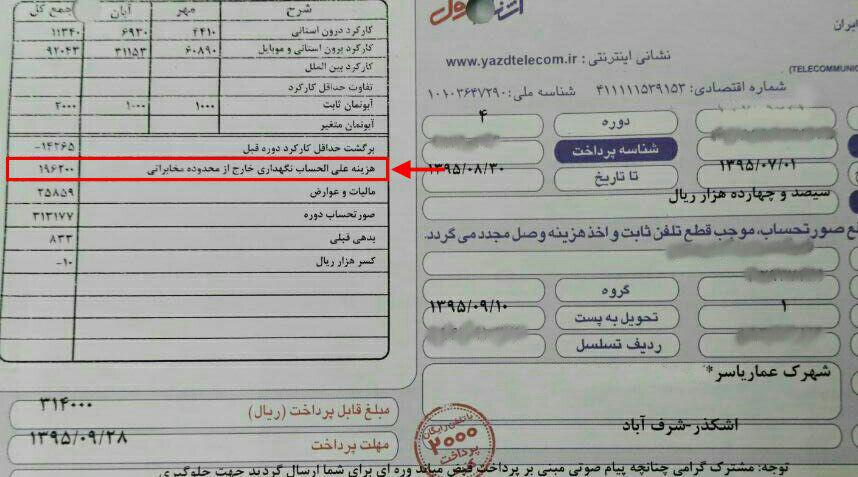 ایران
(TELECOMMUNIC
نشانی اینترنتی : www.yazdtelecom.ir
شماره اقتصادی: ۴۱۱۱۱۱۵۳۹۱۵۳ شناسه ملی: ۱۰۱۰۳۶۴۷۲۹۰
دوره ۴
شناسه پرداخت
۱۳۹۵/۰۷/۰۱ تا تاریخ ۱۳۹۵/۰۸/۳۰
سیصد و چهارده هزار ریال
صورتحساب، موجب قطع تلفن ثابت و اخذ هزینه وصل مجدد می گردد.
گروه
۱ تحویل به پست ۱۳۹۵/۰۹/۱۰
ردیف تسلسل
شهرک عماریاسر*
اشکذر-شرف آباد
توجه: مشترک گرامی چنانچه پیام صوتی مبنی بر پرداخت قبض میاند وره ای برای شما ارسال گردید جهت جلوگیری
شرح مهر آبان جمع کل
کارکرد درون استانی ۴۴۱۰ ۶۹۳۰ ۱۱۳۴۰
کارکرد برون استانی و موبایل ۶۰۸۹۰ ۳۱۱۵۳ ۹۲۰۴۳
کارکرد بین الملل
تفاوت حداقل کارکرد
آبونمان ثابت ۱۰۰۰ ۱۰۰۰ ۲۰۰۰
آبونمان متغیر
برگشت حداقل کارکرد دوره قبل ۱۴۲۶۵-
هزینه علی الحساب نگهداری خارج از محدوده مخابراتی ۱۹۶۲۰۰
مالیات و عوارض ۲۵۸۵۹
صورتحساب دوره ۳۱۳۱۷۷
بدهی قبلی ۸۳۳
کسر هزار ریال ۱۰-
مبلغ قابل پرداخت (ریال) ۳۱۴۰۰۰
مهلت پرداخت ۱۳۹۵/۰۹/۲۸
با تلفن رایگان
۲۰۰۰
پرداخت